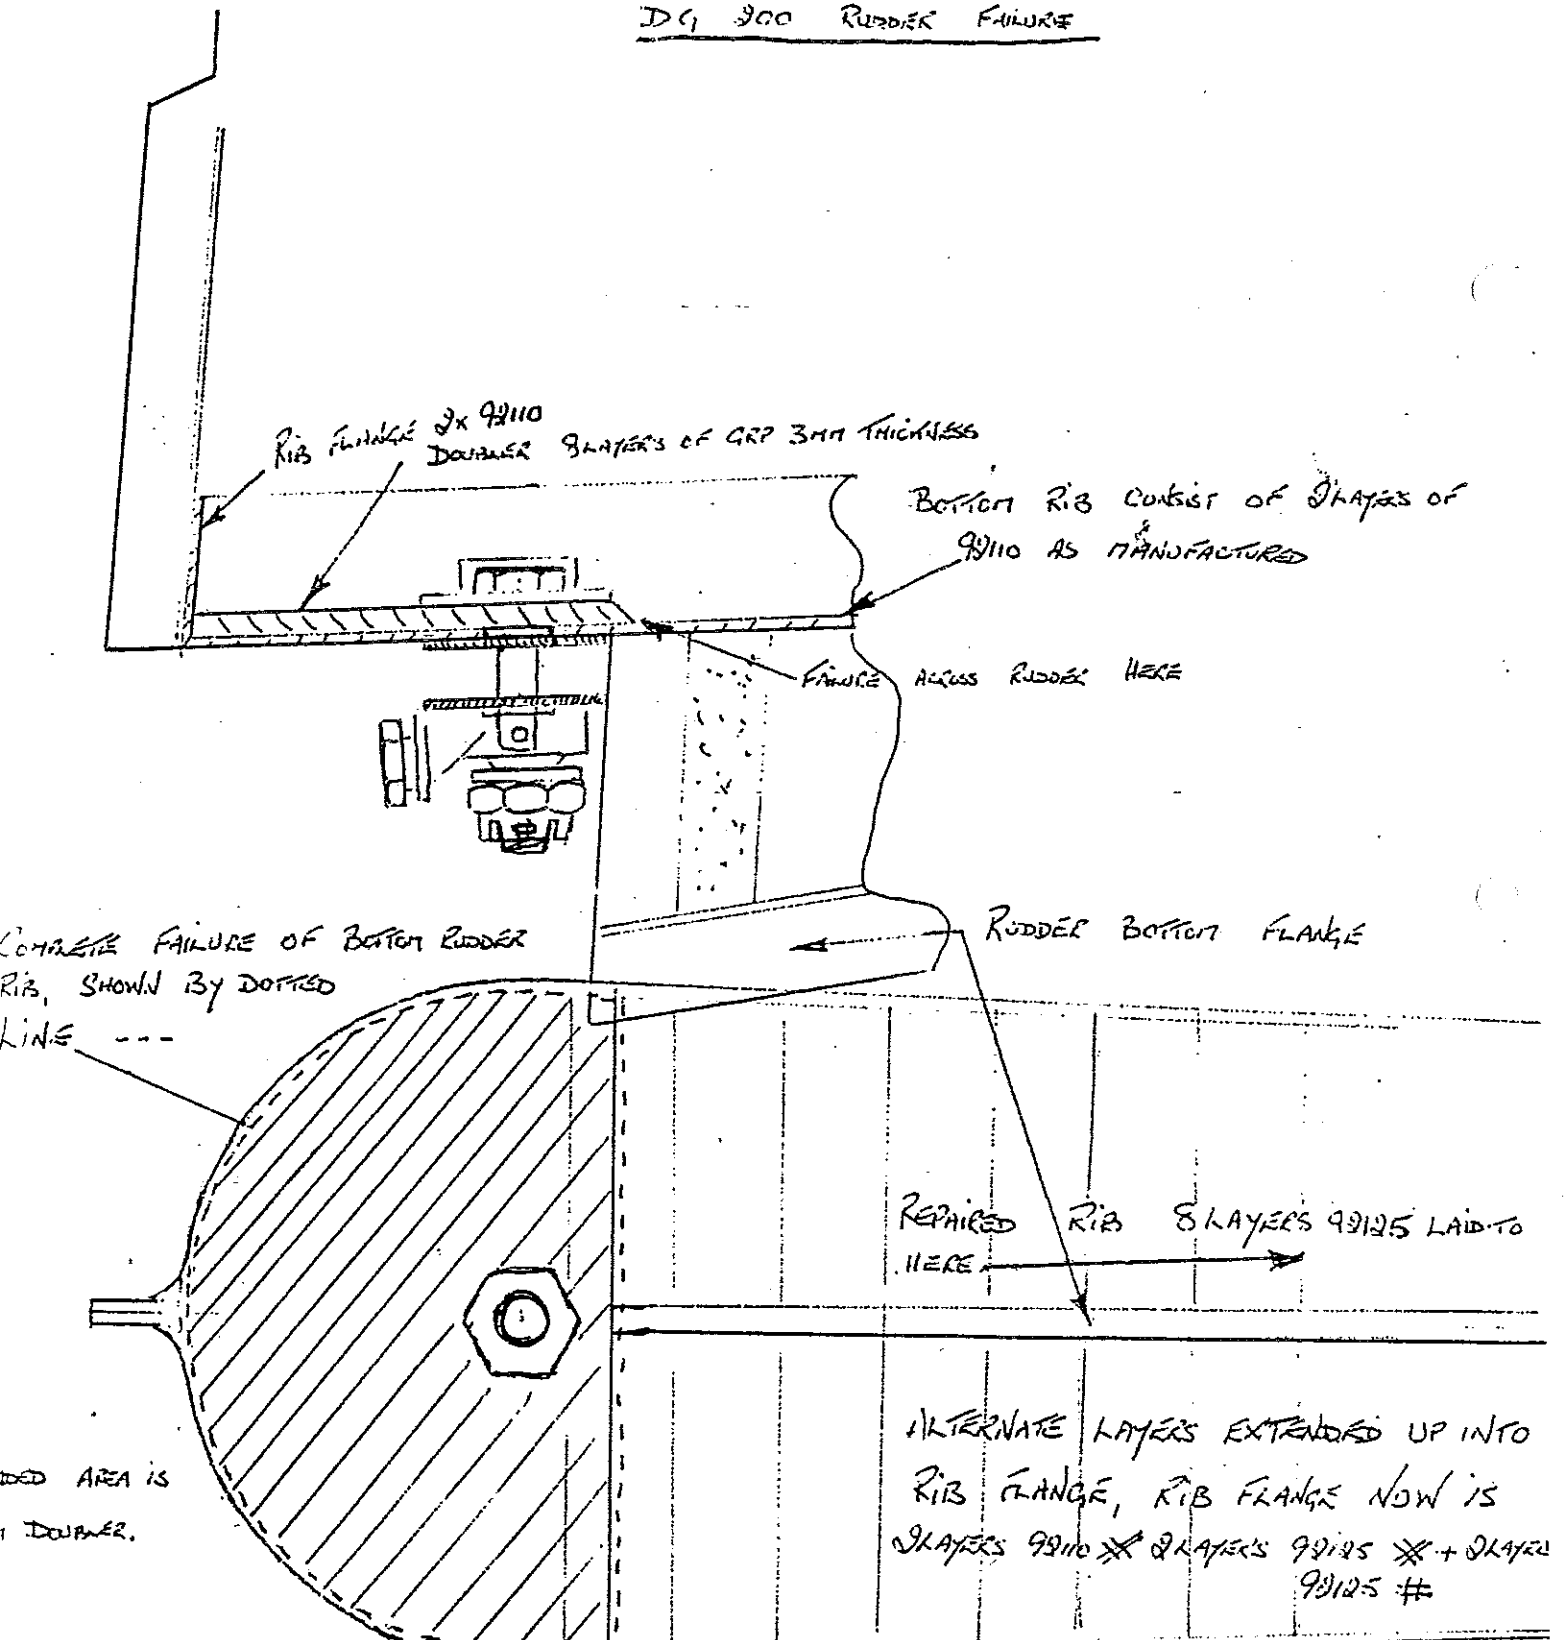 DG 200 RUDDER FAILURE
RIB FLANGE 2x 92110
DOUBLER 8 LAYERS OF GRP 3MM THICKNESS
BOTTOM RIB CONSIST OF 2 LAYERS OF
92110 AS MANUFACTURED
FAILURE ACROSS RUDDER HERE
COMPLETE FAILURE OF BOTTOM RUDDER
RIB, SHOWN BY DOTTED
LINE ---
RUDDER BOTTOM FLANGE
REPAIRED RIB 8 LAYERS 92125 LAID TO
HERE
ALTERNATE LAYERS EXTENDED UP INTO
RIB FLANGE, RIB FLANGE NOW IS
2 LAYERS 92110 2 LAYERS 92125 + 2 LAYER
92125 #
DED AREA IS
DOUBLER.